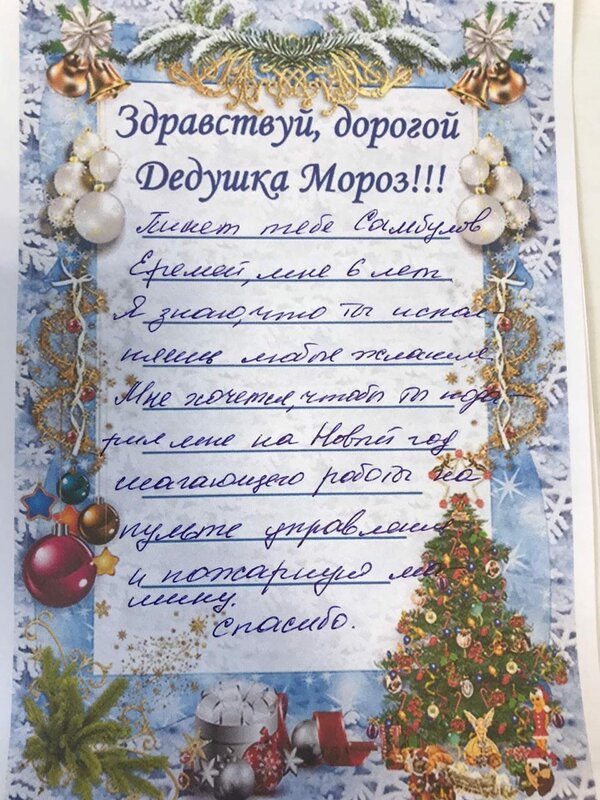 Здравствуй, дорогой
Дедушка Мороз!!!
Пишет тебе Самбулов
Еремей, мне 6 лет.
Я знаю, что ты испол-
няешь любые желания.
Мне хочется, чтобы ты пода-
рил мне на Новый год
шагающего робота на
пульте управления
и пожарную ма-
шину.
Спасибо.